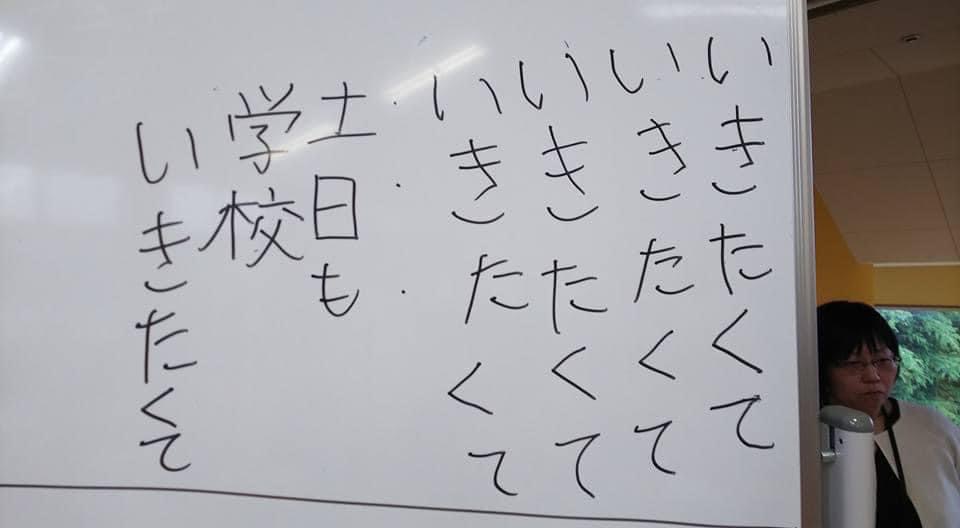 いきたくて
いきたくて
いきたくて
いきたくて
・・・
土日も
学校
いきたくて